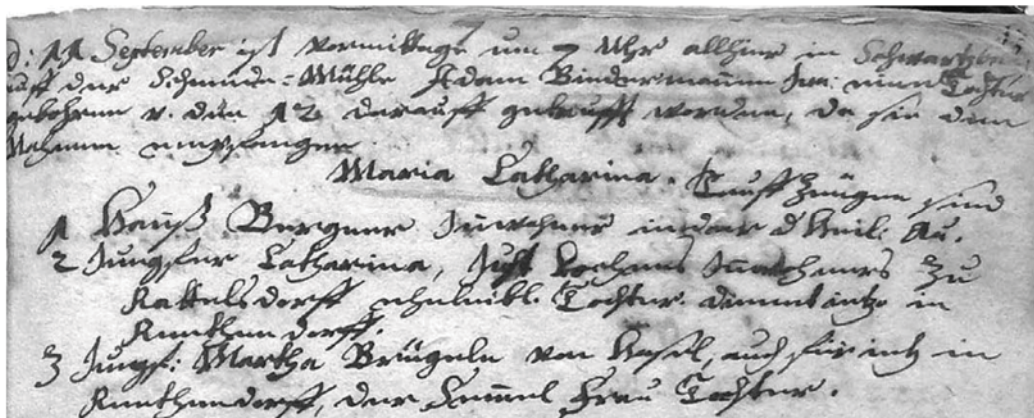 d: 11 September ist Vormittags um 7 Uhr allhier in Schwartzb
auff der Schneide=Mühle Adam Bindermannen Jun: eine Tochter
gebohren v. den 12 darauff getaufft worden, da sie den
Nahmen empfangen
Maria Catharina. Tauff Zeügen sind
1 Hanß Bergner Inwohner in der
2 Jungfer Catharina, Just Inwohners zu
Rattelsdorff eheleibl. Tochter. dienet in
dorff.
3 Jungf: Martha Brügeln von in
dorff, der Frau Tochter.